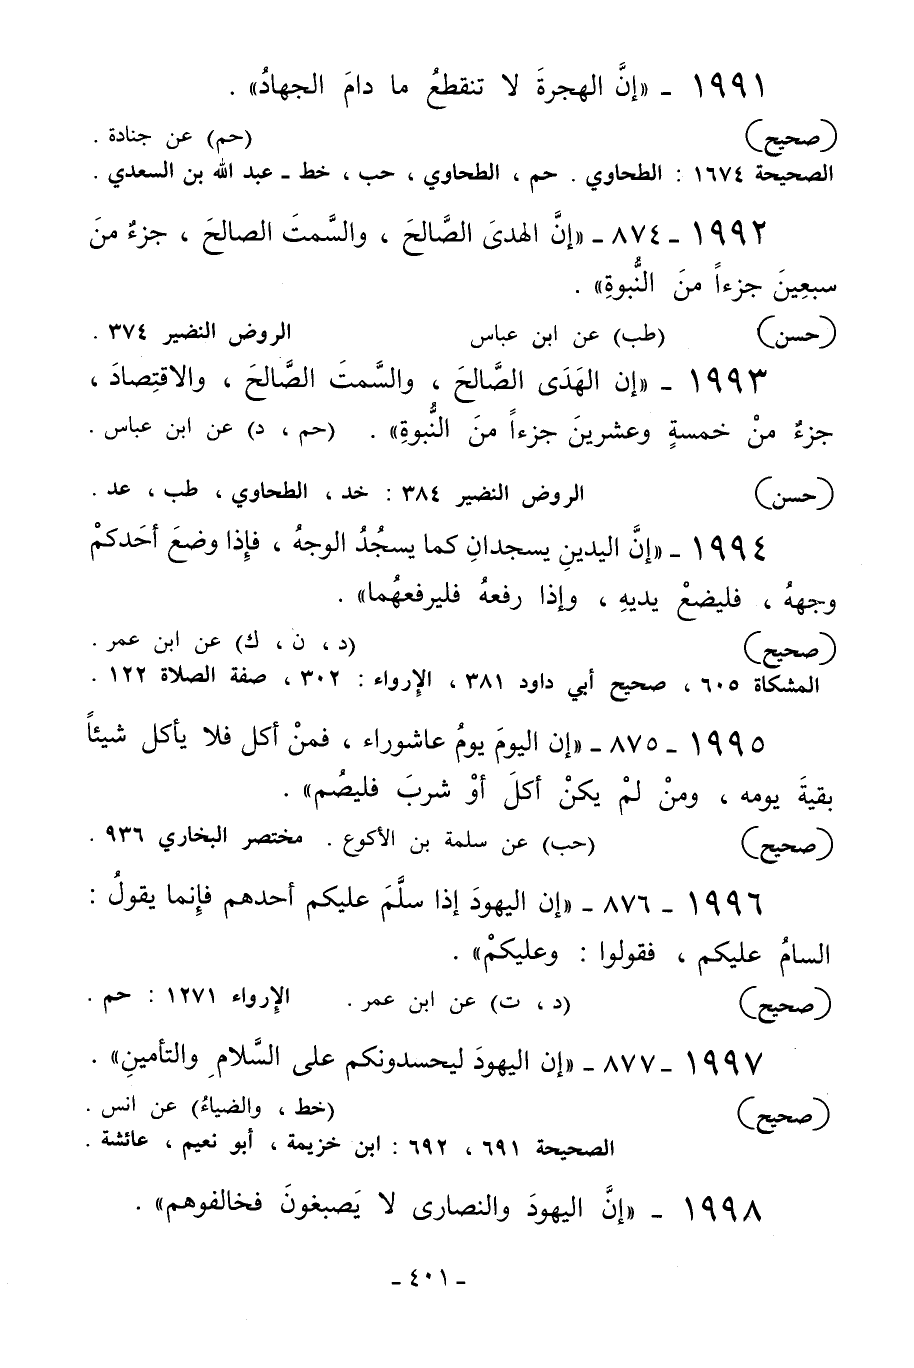 ١٩٩١ - «إنَّ الهجرةَ لا تنقطعُ ما دامَ الجهادُ» .
(صحيح) (حم) عن جنادة .
الصحيحة ١٦٧٤ : الطحاوي . حم ، الطحاوي ، حب ، خط - عبد الله بن السعدي .
١٩٩٢ - ٨٧٤ - «إنَّ الهدىَ الصَّالحَ ، والسَّمتَ الصالحَ ، جزءٌ منَ
سبعِينَ جزءاً منَ النُّبوةِ» .
(حسن) (طب) عن ابن عباس الروض النضير ٣٧٤ .
١٩٩٣ - «إن الهَدَى الصَّالحَ ، والسَّمتَ الصَّالحَ ، والاقتِصادَ ،
جزءٌ منْ خمسةٍ وعشرينَ جزءاً منَ النُّبوةِ» . (حم ، د) عن ابن عباس .
(حسن) الروض النضير ٣٨٤ : خد ، الطحاوي ، طب ، عد .
١٩٩٤ - «إنَّ اليدينِ يسجدانِ كما يسجُدُ الوجهُ ، فإِذا وضعَ أحَدكمْ
وجههُ ، فليضعْ يديهِ ، وإذا رفعهُ فليرفعهُما» .
(صحيح) (د ، ن ، ك) عن ابن عمر .
المشكاة ٦٠٥ ، صحيح أبي داود ٣٨١ ، الإرواء : ٣٠٢ ، صفة الصلاة ١٢٢ .
١٩٩٥ - ٨٧٥ - «إن اليومَ يومُ عاشوراء ، فمنْ أكل فلا يأكل شيئاً
بقيةَ يومه ، ومنْ لمْ يكنْ أكلَ أوْ شربَ فليصُم» .
(صحيح) (حب) عن سلمة بن الأكوع . مختصر البخاري ٩٣٦ .
١٩٩٦ - ٨٧٦ - «إن اليهودَ إذا سلَّمَ عليكم أحدهم فإِنما يقولُ :
السامُ عليكم ، فقولوا : وعليكمْ» .
(صحيح) (د ، ت) عن ابن عمر . الإرواء ١٢٧١ : حم .
١٩٩٧ - ٨٧٧ - «إن اليهودَ ليحسدونكم على السَّلامِ والتأمينِ» .
(صحيح) (خط ، والضياءُ) عن انس .
الصحيحة ٦٩١ ، ٦٩٢ : ابن خزيمة ، أبو نعيم ، عائشة .
١٩٩٨ - «إنَّ اليهودَ والنصارى لا يَصبغونَ فخالفوهم» .
- ٤٠١ -